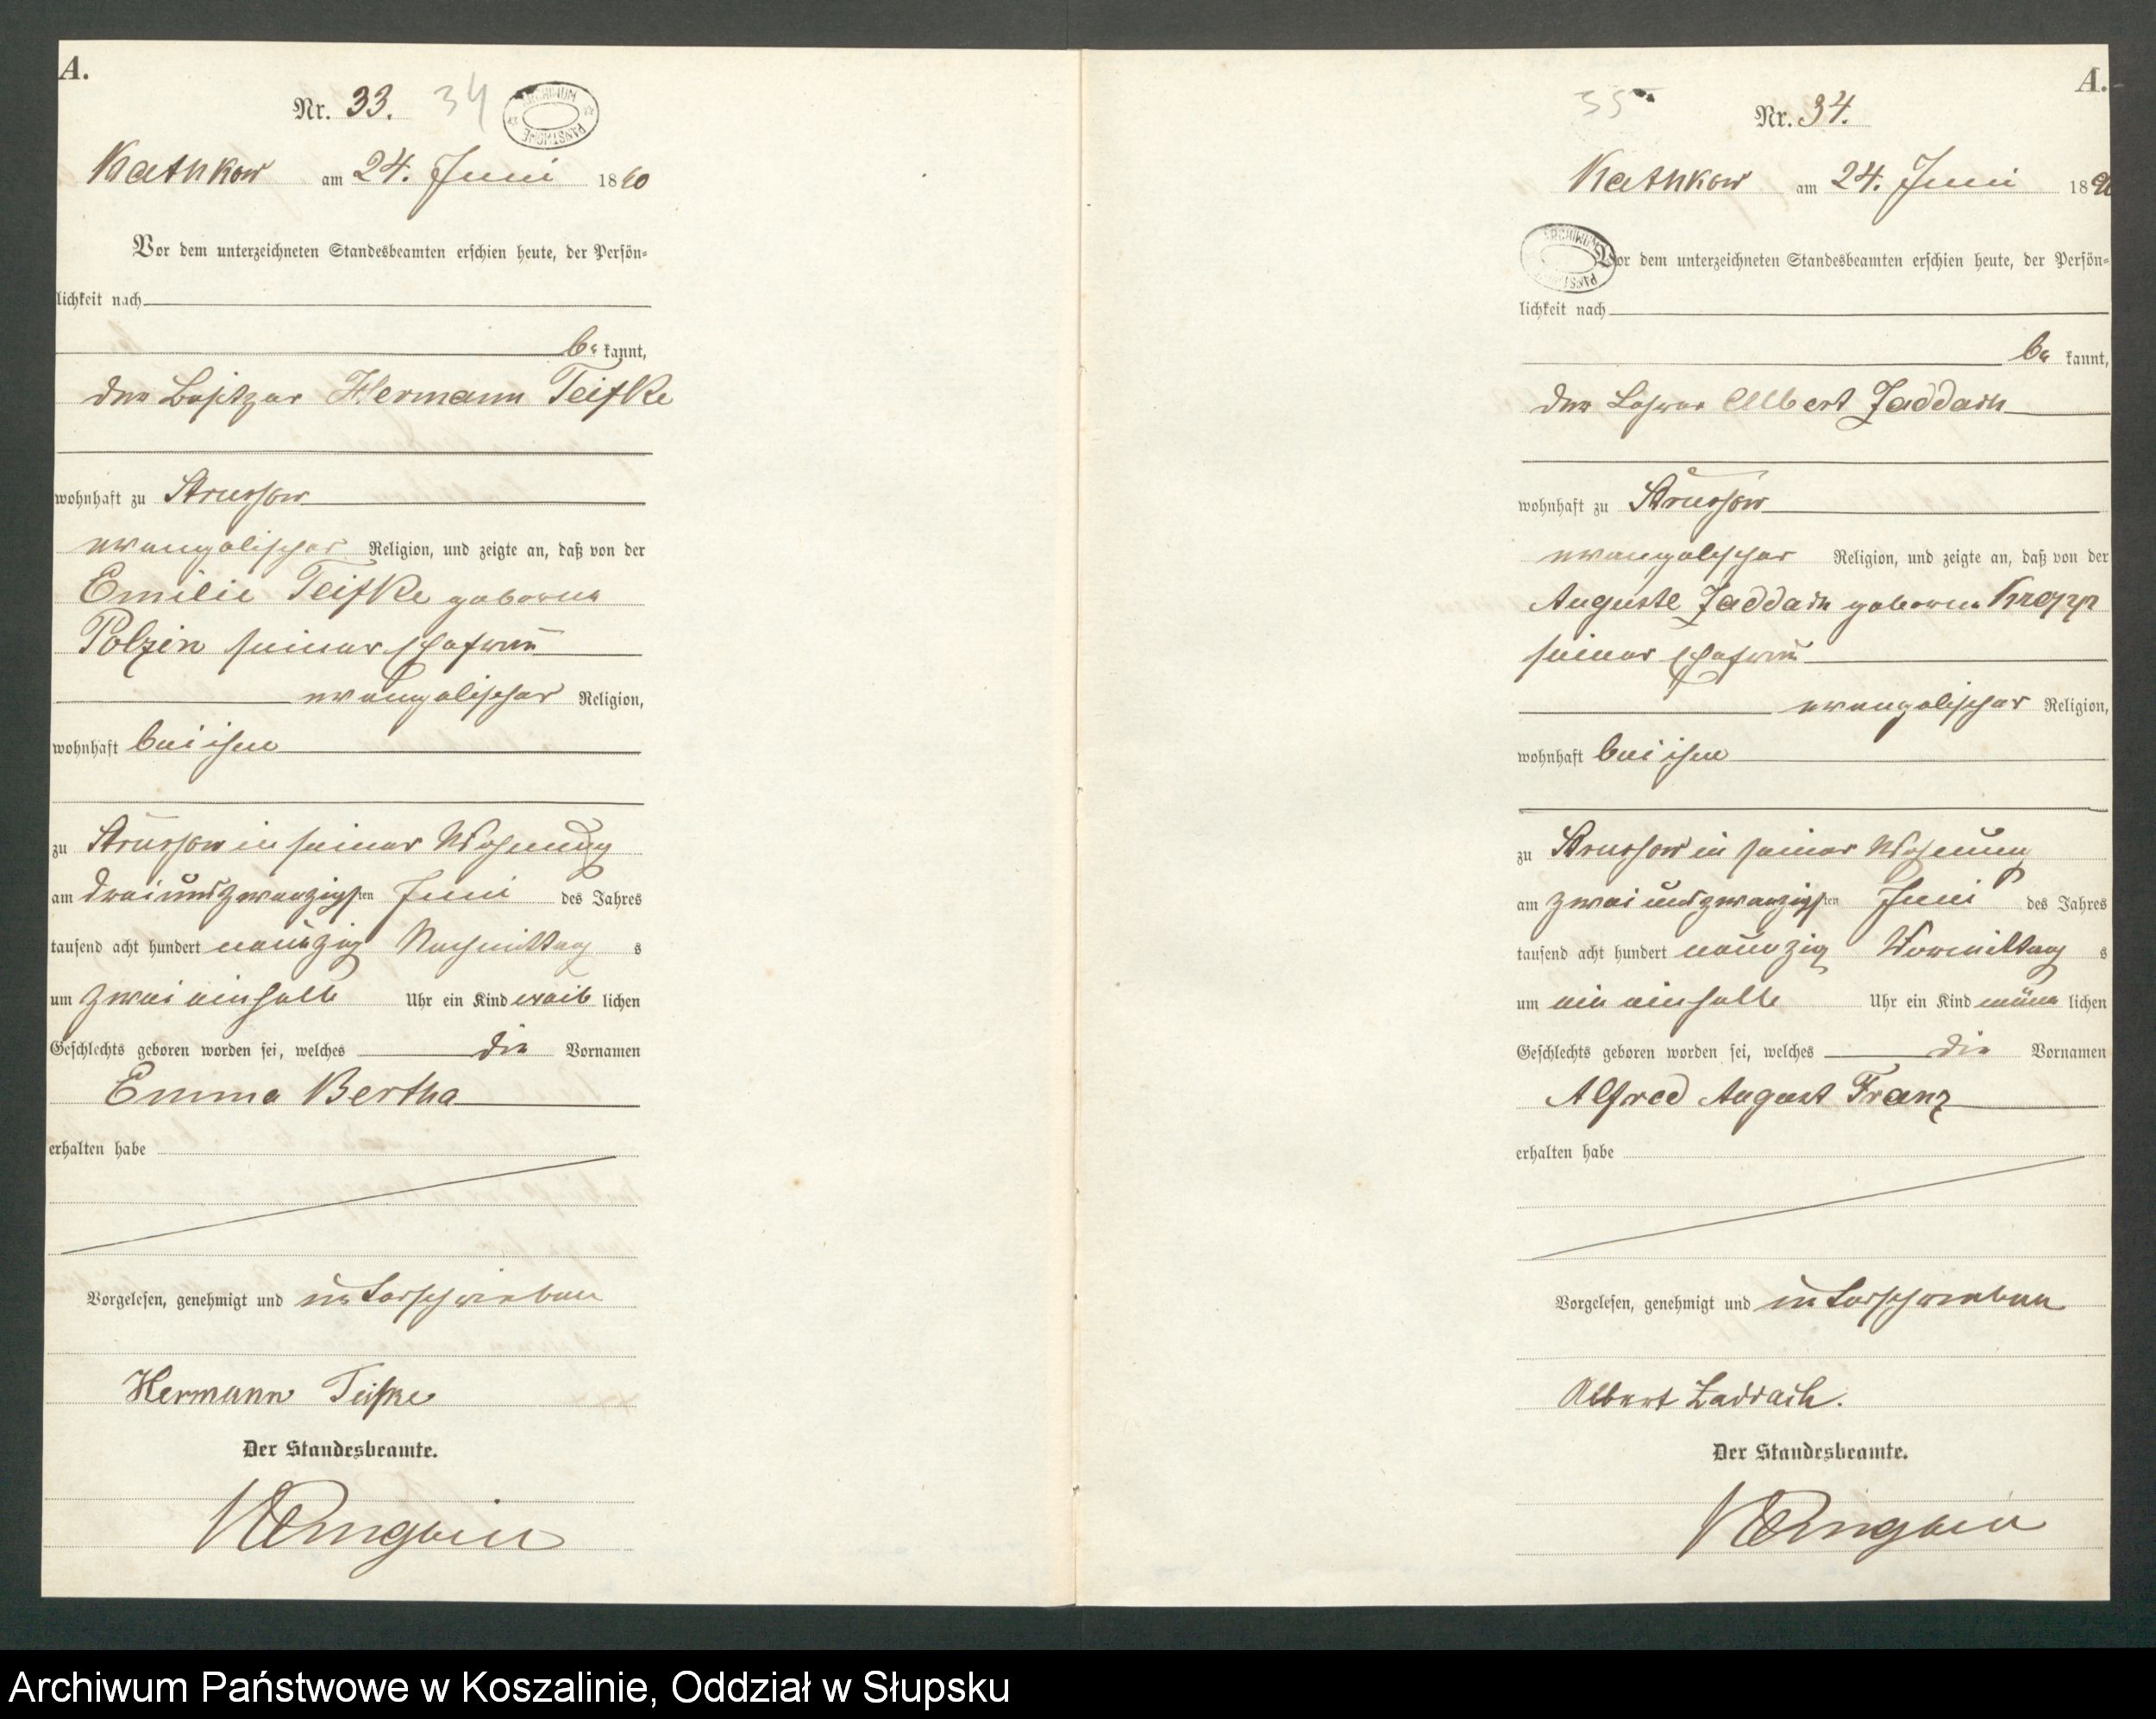 A.
Nr. 33. 34
ARCHIWUM PAŃSTWOWE
Kathkow am 24. Juni 1890
Vor dem unterzeichneten Standesbeamten erschien heute, der Persön-
lichkeit nach
be kannt,
der Besitzer Hermann Teifke
wohnhaft zu Strussow
evangelischer Religion, und zeigte an, daß von der
Emilie Teifke geborene
Polzin seiner Ehefrau
evangelischer Religion,
wohnhaft bei ihm
zu Strussow in seiner Wohnung
am drei und zwanzigsten Juni des Jahres
tausend acht hundert neunzig Nachmittag s
um zwei einhalb Uhr ein Kind weib lichen
Geschlechts geboren worden sei, welches die Vornamen
Emma Bertha
erhalten habe
Vorgelesen, genehmigt und unterschrieben
Hermann Teifke
Der Standesbeamte.
A.
35 Nr. 34.
Kathkow am 24. Juni 1890
ARCHIWUM PAŃSTWOWE
Vor dem unterzeichneten Standesbeamten erschien heute, der Persön-
lichkeit nach
be kannt,
der Albert Zaddach
wohnhaft zu Strussow
evangelischer Religion, und zeigte an, daß von der
Auguste Zaddach geborene Kropp
seiner Ehefrau
evangelischer Religion,
wohnhaft bei ihm
zu Strussow in seiner Wohnung
am zwei und zwanzigsten Juni des Jahres
tausend acht hundert neunzig Vormittag s
um ein einhalb Uhr ein Kind männ lichen
Geschlechts geboren worden sei, welches die Vornamen
Alfred August Franz
erhalten habe
Vorgelesen, genehmigt und unterschrieben
Albert Zaddach.
Der Standesbeamte.
Archiwum Państwowe w Koszalinie, Oddział w Słupsku